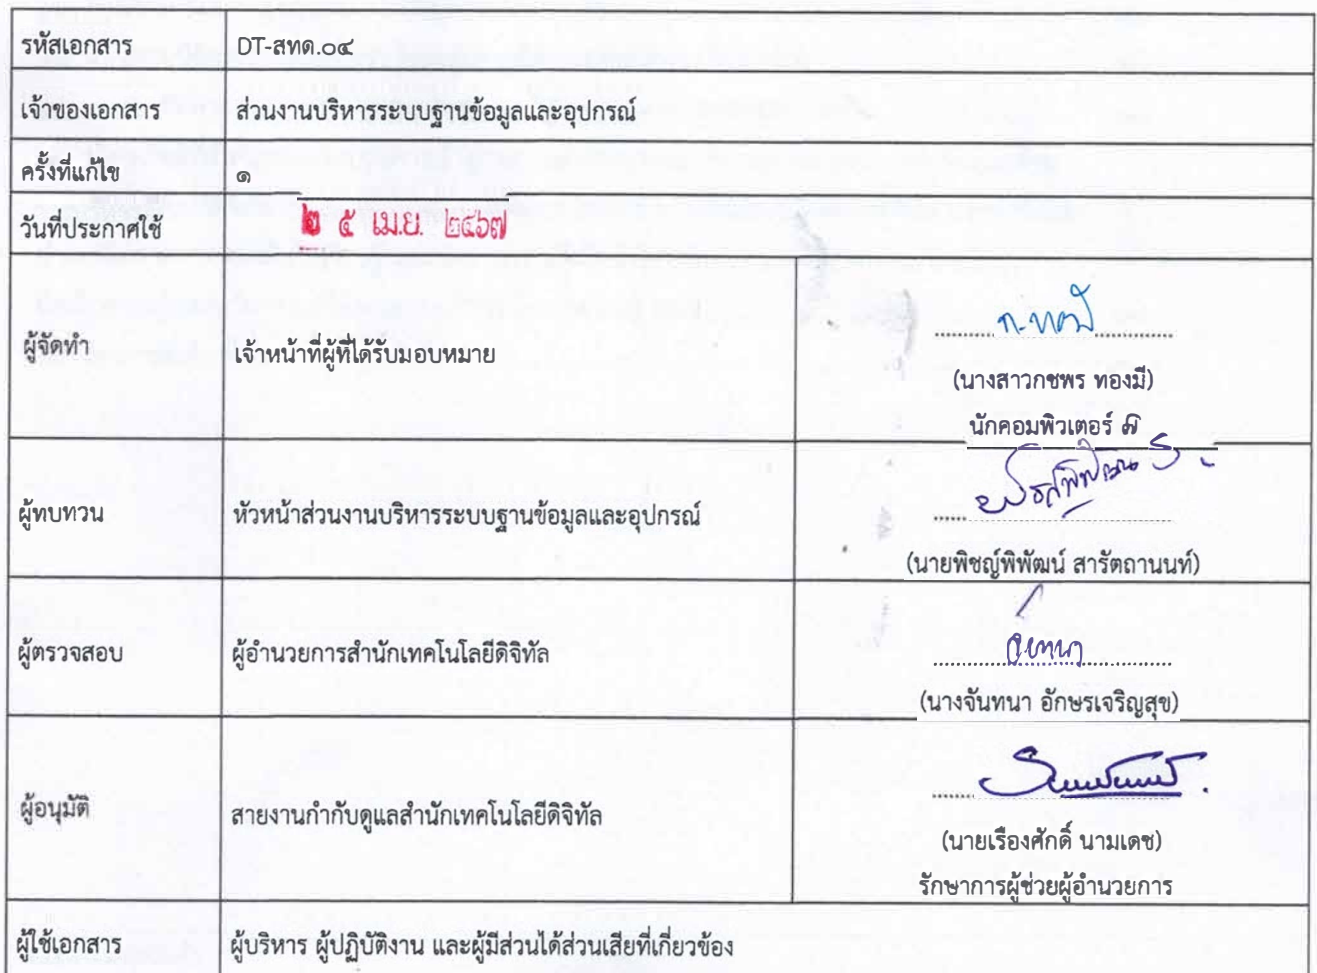 รหัสเอกสาร DT-สทด.๐๔
เจ้าของเอกสาร ส่วนงานบริหารระบบฐานข้อมูลและอุปกรณ์
ครั้งที่แก้ไข ๑
วันที่ประกาศใช้ ๒ ๕ เม.ย. ๒๕๖๗
ผู้จัดทำ เจ้าหน้าที่ผู้ที่ได้รับมอบหมาย
(นางสาวกชพร ทองมี)
นักคอมพิวเตอร์ ๗
ผู้ทบทวน หัวหน้าส่วนงานบริหารระบบฐานข้อมูลและอุปกรณ์
(นายพิชญ์พิพัฒน์ สารัตถานนท์)
ผู้ตรวจสอบ ผู้อำนวยการสำนักเทคโนโลยีดิจิทัล
(นางจันทนา อักษรเจริญสุข)
ผู้อนุมัติ สายงานกำกับดูแลสำนักเทคโนโลยีดิจิทัล
(นายเรืองศักดิ์ นามเดช)
รักษาการผู้ช่วยผู้อำนวยการ
ผู้ใช้เอกสาร ผู้บริหาร ผู้ปฏิบัติงาน และผู้มีส่วนได้ส่วนเสียที่เกี่ยวข้อง